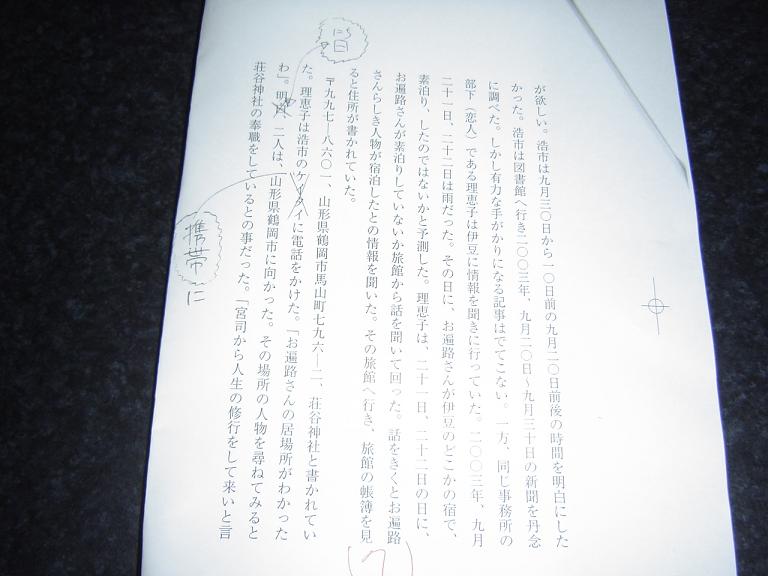 が欲しい。浩市は九月三〇日から一〇日前の九月二〇日前後の時間を明白にした
かった。浩市は図書館へ行き二〇〇三年、九月二〇日～九月三十日の新聞を丹念
に調べた。しかし有力な手がかりになる記事はでてこない。一方、同じ事務所の
部下（恋人）である理恵子は伊豆に情報を聞きに行っていた。二〇〇三年、九月
二十一日、二十二日は雨だった。その日に、お遍路さんが伊豆のどこかの宿で、
素泊り、したのではないかと予測した。理恵子は、二十一日、二十二日の日に、
お遍路さんが素泊りしていないか旅館から話を聞いて回った。話をきくとお遍路
さんらしき人物が宿泊したとの情報を聞いた。その旅館へ行き、旅館の帳簿を見
ると住所が書かれていた。
〒九九七―八六〇一、山形県鶴岡市馬山町七九六―二、荘谷神社と書かれてい
た。理恵子は浩市のケイタイに電話をかけた。「お遍路さんの居場所がわかった
わ」。明白、二人は、山形県鶴岡市に向かった。その場所の人物を尋ねてみると
荘谷神社の奉職をしているとの事だった。「宮司から人生の修行をして来いと言
日
携帯に
(7)